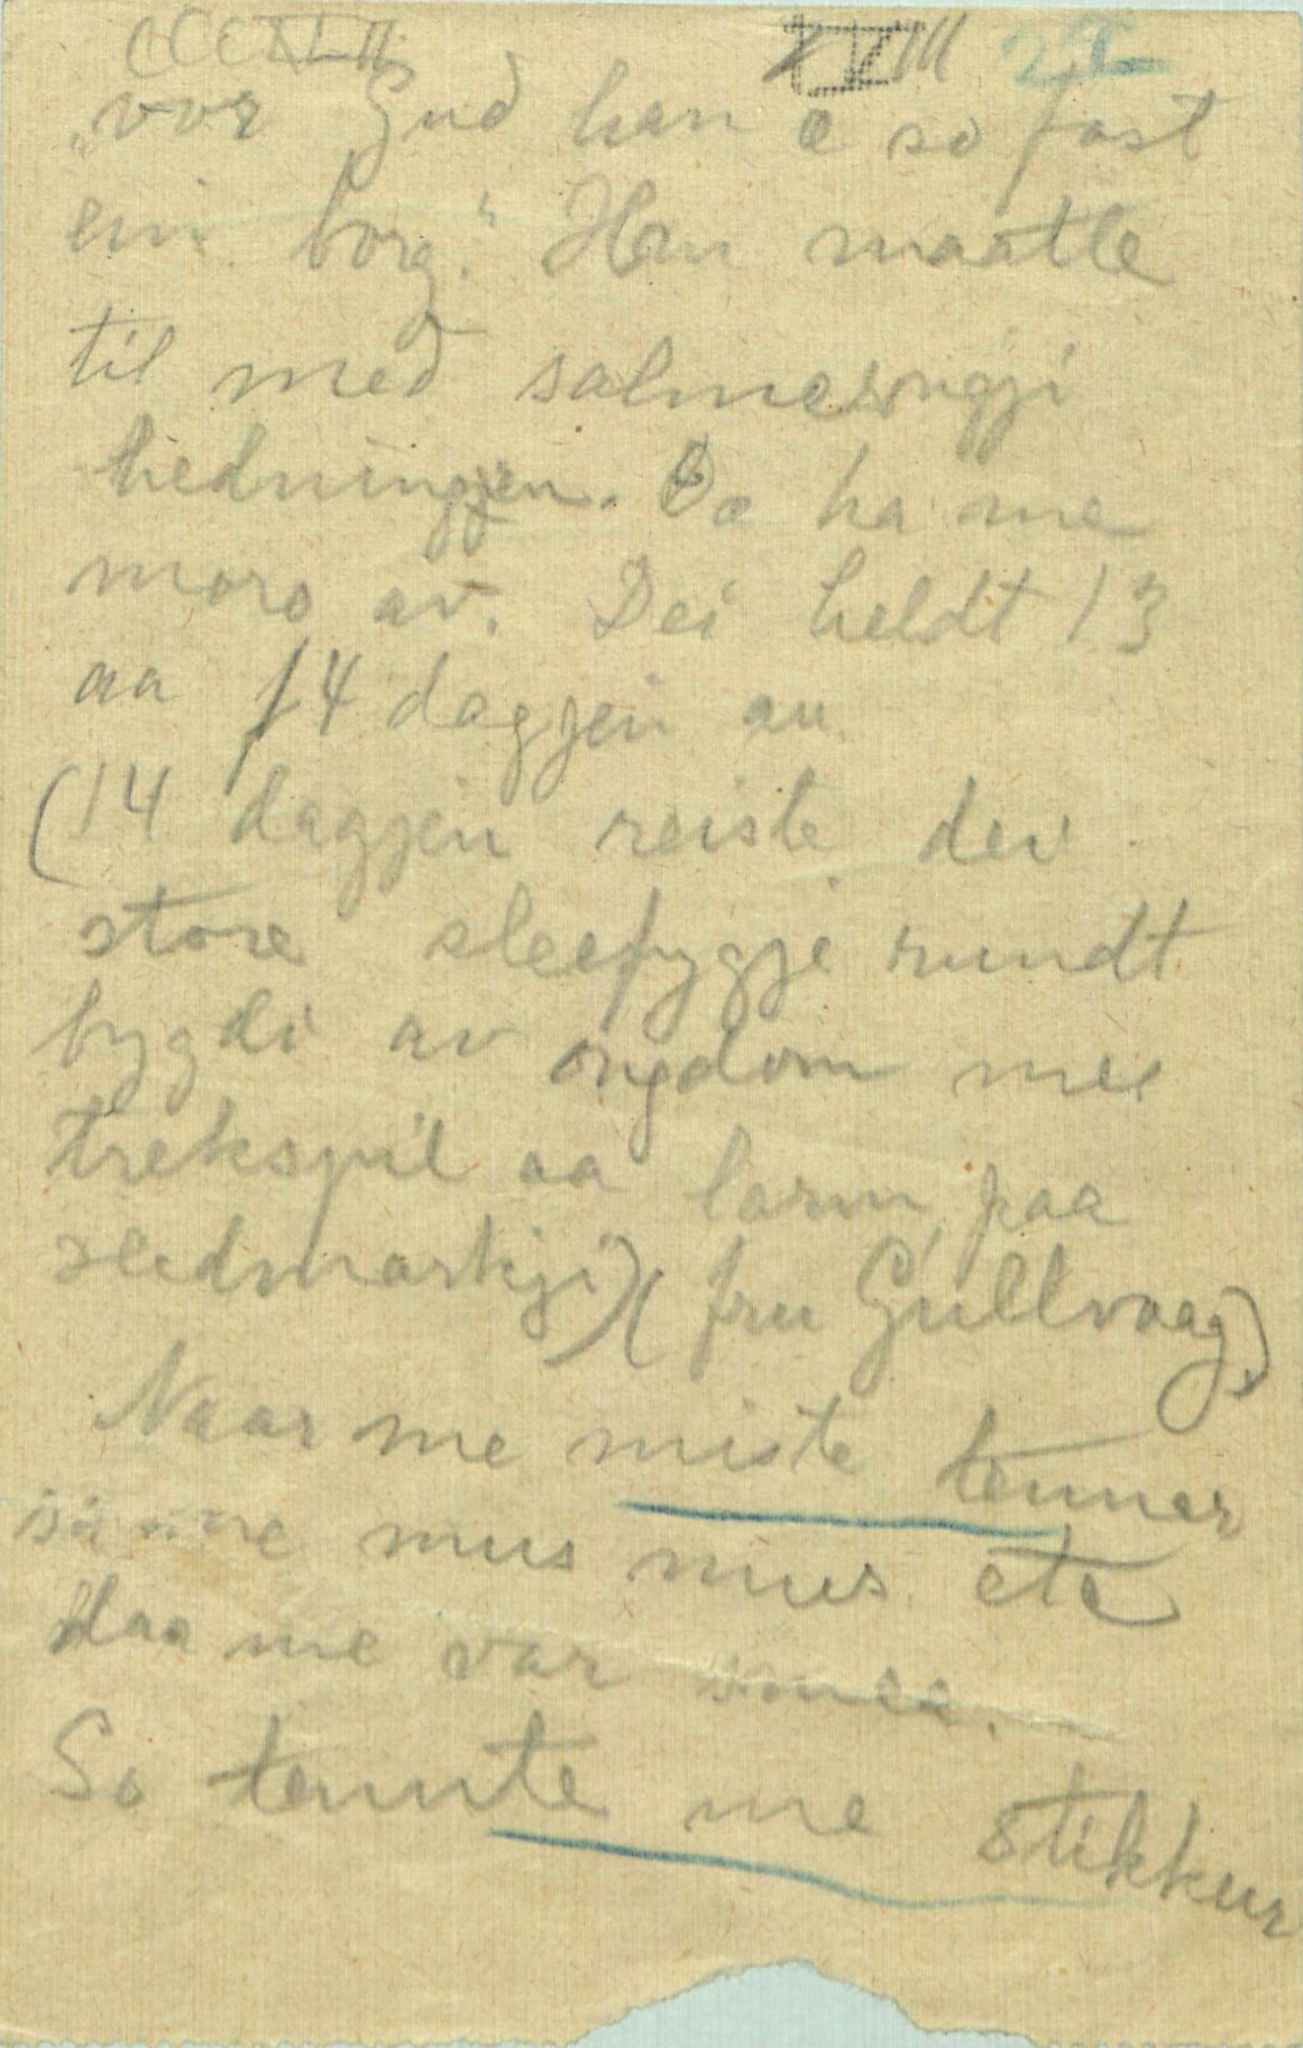 CCCXLII XVIII
"vor Gud han e so fast
ein borg." Han maatte
til med salmesongji
hedningjen. Da ha me
moro av. Dei heldt 13
aa 14 dagjen au
(14 dagjen reiste dei
store sleefygje rundt
bygdi av ongdom mee
trekspil aa larm paa
sledmarkji) (fru Gulltvaag)
Naar me miste tenner
mus mus ete
daa me var smee.
So tennte me stikkur